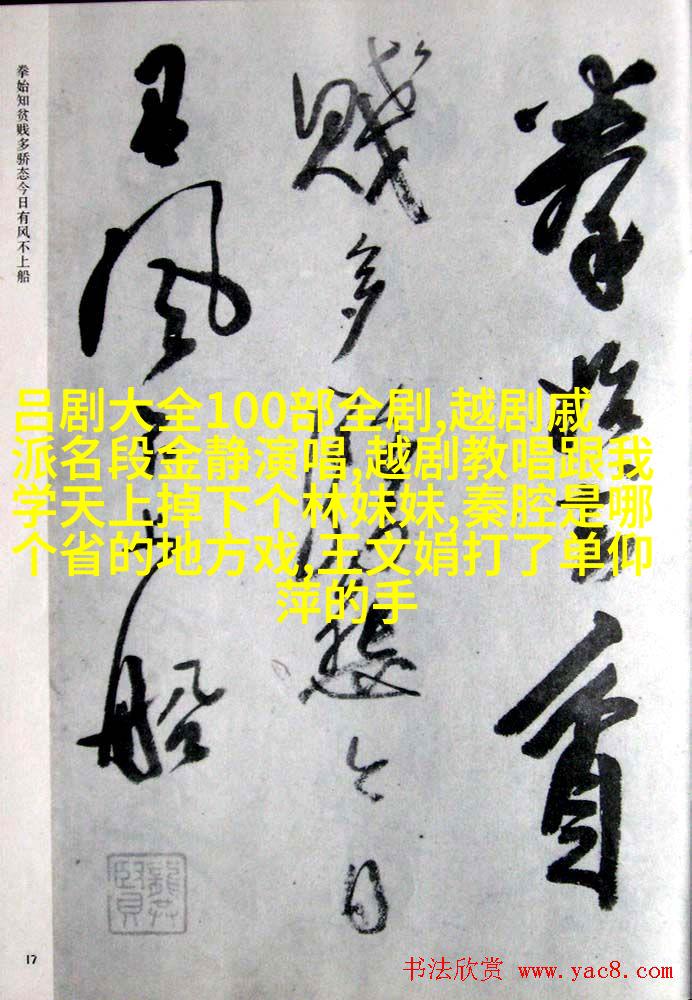 拳始知貧
賤多驕態今日
有風不上船
拳始知贫贱多骄态今日有风不上船
吕剧大全100部全剧,越剧戚
派名段金静演唱,越剧教唱跟我
学天上掉下个林妹妹,秦腔是哪
个省的地方戏,王文娟打了单仰
萍的手
17
书法欣赏 www.yac8.com